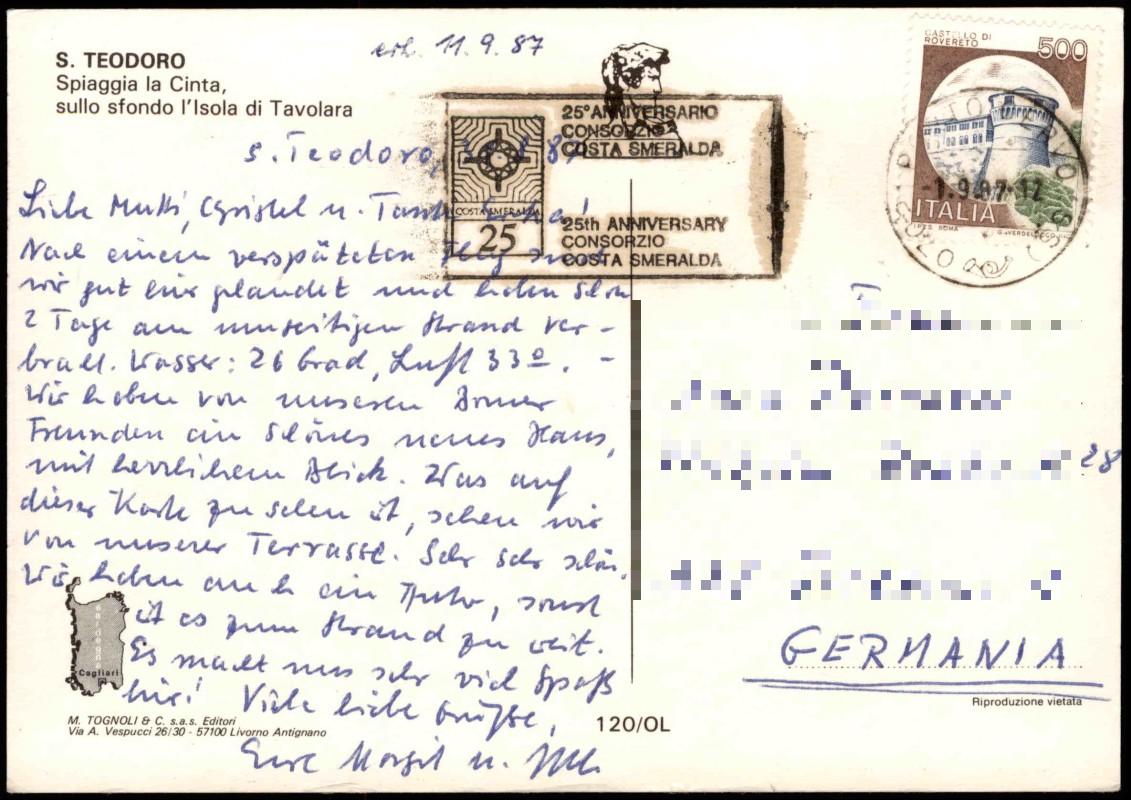 S. TEODORO
Spiaggia la Cinta,
sullo sfondo l'Isola di Tavolara
erh. 11.9.87
CASTELLO DI
ROVERETO
500
ITALIA
I.P.Z.S. ROMA
-1.9.87-17
25° ANNIVERSARIO
CONSORZIO
COSTA SMERALDA
COSTA SMERALDA
25
25th ANNIVERSARY
CONSORZIO
COSTA SMERALDA
S. Teodoro, 87
Liebe Mutti, Christel u. Tante
Nach einem verspäteten Flug sind
wir gut hier gelandet und haben schon
2 Tage am umseitigen Strand ver-
bracht. Wasser: 26 Grad, Luft 33°. -
Wir haben von unseren Freunden
Freunden ein schönes neues Haus,
mit herrlichem Blick. Was auf
dieser Karte zu sehen ist, sehen wir
von unserer Terrasse. Sehr sehr schön.
Wir haben auch ein Auto, sonst
ist es zum Strand zu weit.
Es macht uns sehr viel Spaß
hier! Viele liebe Grüße,
Eure Margit u.
28
GERMANIA
Sardegna
Cagliari
M. TOGNOLI & C. s.a.s. Editori
Via A. Vespucci 26/30 - 57100 Livorno Antignano
120/OL
Riproduzione vietata